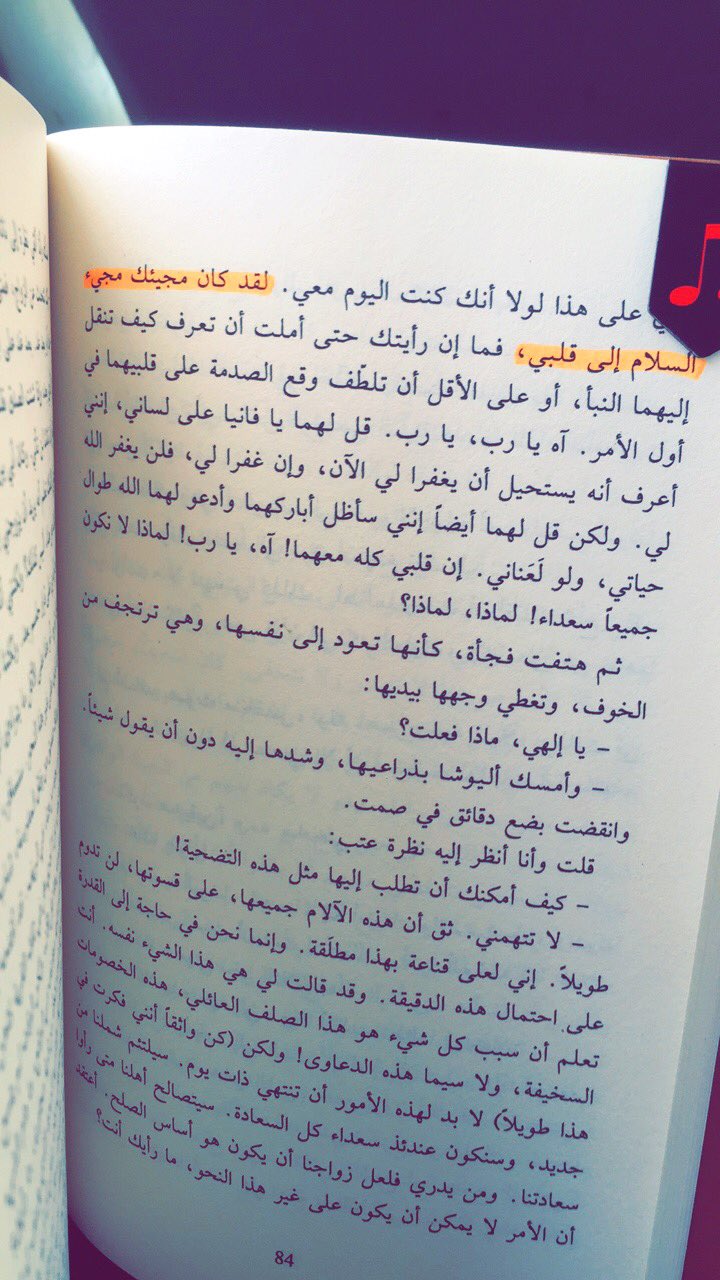 على هذا لولا أنك كنت اليوم معي. لقد كان مجيئك مجيء
السلام إلى قلبي، فما إن رأيتك حتى أملت أن تعرف كيف تنقل
إليهما النبأ، أو على الأقل أن تلطّف وقع الصدمة على قلبيهما في
أول الأمر. آه يا رب، يا رب. قل لهما يا فانيا على لساني، إنني
أعرف أنه يستحيل أن يغفرا لي الآن، وإن غفرا لي، فلن يغفر الله
لي. ولكن قل لهما أيضاً إنني سأظل أباركهما وأدعو لهما الله طوال
حياتي، ولو لَعَناني. إن قلبي كله معهما! آه، يا رب! لماذا لا نكون
جميعاً سعداء! لماذا، لماذا؟
ثم هتفت فجأة، كأنها تعود إلى نفسها، وهي ترتجف من
الخوف، وتغطي وجهها بيديها:
– يا إلهي، ماذا فعلت؟
– وأمسك أليوشا بذراعيها، وشدها إليه دون أن يقول شيئاً.
وانقضت بضع دقائق في صمت.
قلت وأنا أنظر إليه نظرة عتب:
– كيف أمكنك أن تطلب إليها مثل هذه التضحية!
– لا تتهمني. ثق أن هذه الآلام جميعها، على قسوتها، لن تدوم
طويلاً. إني لعلى قناعة بهذا مطلَقة. وإنما نحن في حاجة إلى القدرة
على احتمال هذه الدقيقة. وقد قالت لي هي هذا الشيء نفسه. أنت
تعلم أن سبب كل شيء هو هذا الصلف العائلي، هذه الخصومات
السخيفة، ولا سيما هذه الدعاوى! ولكن (كن واثقاً أنني فكرت في
هذا طويلاً) لا بد لهذه الأمور أن تنتهي ذات يوم. سيلتئم شملنا من
جديد، وسنكون عندئذ سعداء كل السعادة. سيتصالح أهلنا متى رأوا
سعادتنا. ومن يدري فلعل زواجنا أن يكون هو أساس الصلح. أعتقد
أن الأمر لا يمكن أن يكون على غير هذا النحو، ما رأيك أنت؟
84